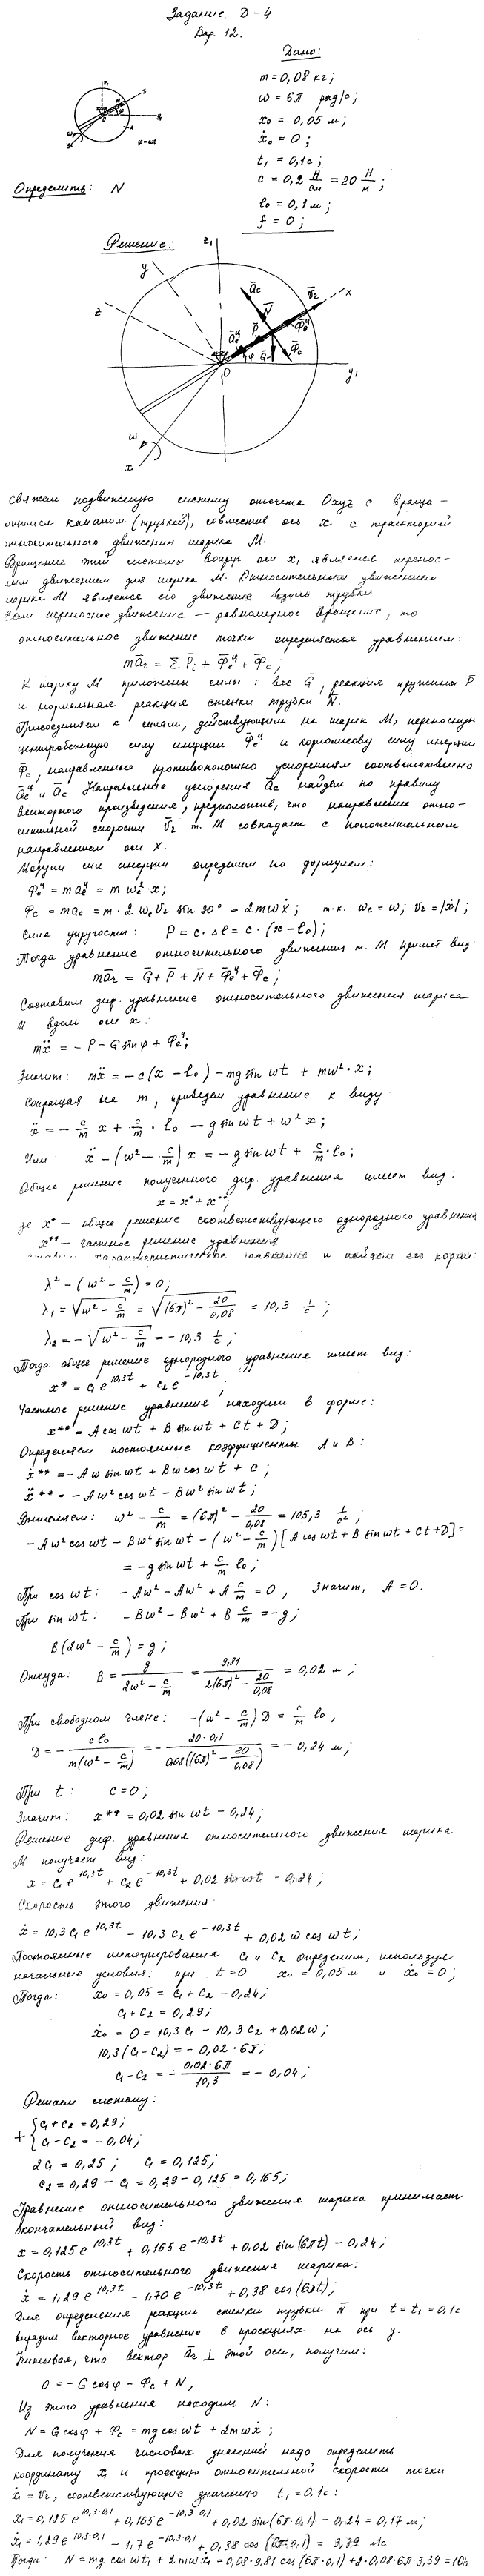 Задание Д-4.
Вар. 12.
Дано:
m = 0,08 кг;
ω = 6π рад/с;
x₀ = 0,05 м;
ẋ₀ = 0;
t₁ = 0,1 с;
c = 0,2 Н/см = 20 Н/м;
l₀ = 0,1 м;
f = 0;
φ=ωt
Определить: N
Решение:
z₁
y
z
x
y₁
x₁
ω
O
φ
Свяжем подвижную систему отсчета Oxyz с враща-
ющимся каналом (трубкой), совместив ось x с траекторией
относительного движения шарика M.
Вращение этой системы вокруг оси x₁ является перенос-
ным движением для шарика M. Относительным движением
шарика M является его движение вдоль трубки
Если переносное движение – равномерное вращение, то
относительное движение точки определяется уравнением:
māᵣ = Σ P̄ᵢ + Φ̄ₑᵘ + Φ̄c;
К шарику M приложены силы: вес Ḡ, реакция пружины P̄
и нормальная реакция стенки трубки N̄.
Присоединяем к силам, действующим на шарик M, переносную
центробежную силу инерции Φ̄ₑᵘ и кориолисову силу инерции
Φ̄c, направленные противоположно ускорениям соответственно
āₑᵘ и āc. Направление ускорения āc найдем по правилу
векторного произведения, предположив, что направление отно-
сительной скорости v̄ᵣ т. M совпадает с положительным
направлением оси x.
Модули сил инерции определим по формулам:
Φₑᵘ = maₑᵘ = mωₑ²·x;
Φc = mac = m·2ωₑvᵣ sin 90° = 2mωẋ; т.к. ωₑ = ω; vᵣ = |ẋ|;
Сила упругости: P = c·Δl = c·(x - l₀);
Тогда уравнение относительного движения т. M примет вид
māᵣ = Ḡ + P̄ + N̄ + Φ̄ₑᵘ + Φ̄c;
Составим диф. уравнение относительного движения шарика
M вдоль оси x:
mẍ = -P - G sin φ + Φₑᵘ;
Значит: mẍ = -c(x - l₀) - mg sin ωt + mω²·x;
Сокращая на m, приведем уравнение к виду:
ẍ = -c/m x + c/m · l₀ - g sin ωt + ω²x;
Или: ẍ - (ω² - c/m)x = -g sin ωt + c/m · l₀;
Общее решение полученного диф. уравнения имеет вид:
x = x* + x**;
где x* – общее решение соответствующего однородного уравнения
x** – частное решение уравнения
характеристическое уравнение и найдем его корни:
λ² - (ω² - c/m) = 0;
λ₁ = √(ω² - c/m) = √((6π)² - 20/0,08) = 10,3 1/с;
λ₂ = -√(ω² - c/m) = -10,3 1/с;
Тогда общее решение однородного уравнения имеет вид:
x* = c₁e^10,3t + c₂e^-10,3t;
Частное решение уравнения находим в форме:
x** = A cos ωt + B sin ωt + Ct + D;
Определяем постоянные коэффициенты A и B:
ẋ** = -Aω sin ωt + Bω cos ωt + C;
ẍ** = -Aω² cos ωt - Bω² sin ωt;
Вычисляем: ω² - c/m = (6π)² - 20/0,08 = 105,3 1/с²;
-Aω² cos ωt - Bω² sin ωt - (ω² - c/m)[A cos ωt + B sin ωt + Ct + D] =
= -g sin ωt + c/m l₀;
При cos ωt: -Aω² - Aω² + A c/m = 0; Значит, A = 0.
При sin ωt: -Bω² - Bω² + B c/m = -g;
B(2ω² - c/m) = g;
Откуда: B = g/(2ω² - c/m) = 9,81/(2(6π)² - 20/0,08) = 0,02 м;
При свободном члене: -(ω² - c/m)D = c/m l₀;
D = -cl₀/(m(ω² - c/m)) = -20·0,1/(0,08((6π)² - 20/0,08)) = -0,24 м;
При t: C = 0;
Значит: x** = 0,02 sin ωt - 0,24;
Решение диф. уравнения относительного движения шарика
M получает вид:
x = c₁e^10,3t + c₂e^-10,3t + 0,02 sin ωt - 0,24;
Скорость этого движения:
ẋ = 10,3c₁e^10,3t - 10,3c₂e^-10,3t + 0,02ω cos ωt;
Постоянные интегрирования c₁ и c₂ определим, используя
начальные условия: при t = 0 x₀ = 0,05 м и ẋ₀ = 0;
Тогда: x₀ = 0,05 = c₁ + c₂ - 0,24;
c₁ + c₂ = 0,29;
ẋ₀ = 0 = 10,3c₁ - 10,3c₂ + 0,02ω;
10,3(c₁ - c₂) = -0,02·6π;
c₁ - c₂ = -0,02·6π/10,3 = -0,04;
Решаем систему:
+ { c₁ + c₂ = 0,29;
c₁ - c₂ = -0,04;
2c₁ = 0,25; c₁ = 0,125;
c₂ = 0,29 - c₁ = 0,29 - 0,125 = 0,165;
Уравнение относительного движения шарика принимает
окончательный вид:
x = 0,125e^10,3t + 0,165e^-10,3t + 0,02 sin(6πt) - 0,24;
Скорость относительного движения шарика:
ẋ = 1,29e^10,3t - 1,70e^-10,3t + 0,38 cos(6πt);
Для определения реакции стенки трубки N̄ при t = t₁ = 0,1 с
выразим векторное уравнение в проекциях на ось y.
Учитывая, что вектор āᵣ ⊥ этой оси, получим:
0 = -G cos φ - Φc + N;
Из этого уравнения находим N:
N = G cos φ + Φc = mg cos ωt + 2mωẋ;
Для получения числовых значений надо определить
координату x₁ и проекцию относительной скорости точки
ẋ₁ = vᵣ, соответствующие значению t₁ = 0,1 с:
x₁ = 0,125e^10,3·0,1 + 0,165e^-10,3·0,1 + 0,02 sin(6π·0,1) - 0,24 = 0,17 м;
ẋ₁ = 1,29e^10,3·0,1 - 1,7e^-10,3·0,1 + 0,38 cos(6π·0,1) = 3,39 м/с
Тогда: N = mg cos ωt₁ + 2mωẋ₁ = 0,08·9,81 cos(6π·0,1) + 2·0,08·6π·3,39 = 10Н